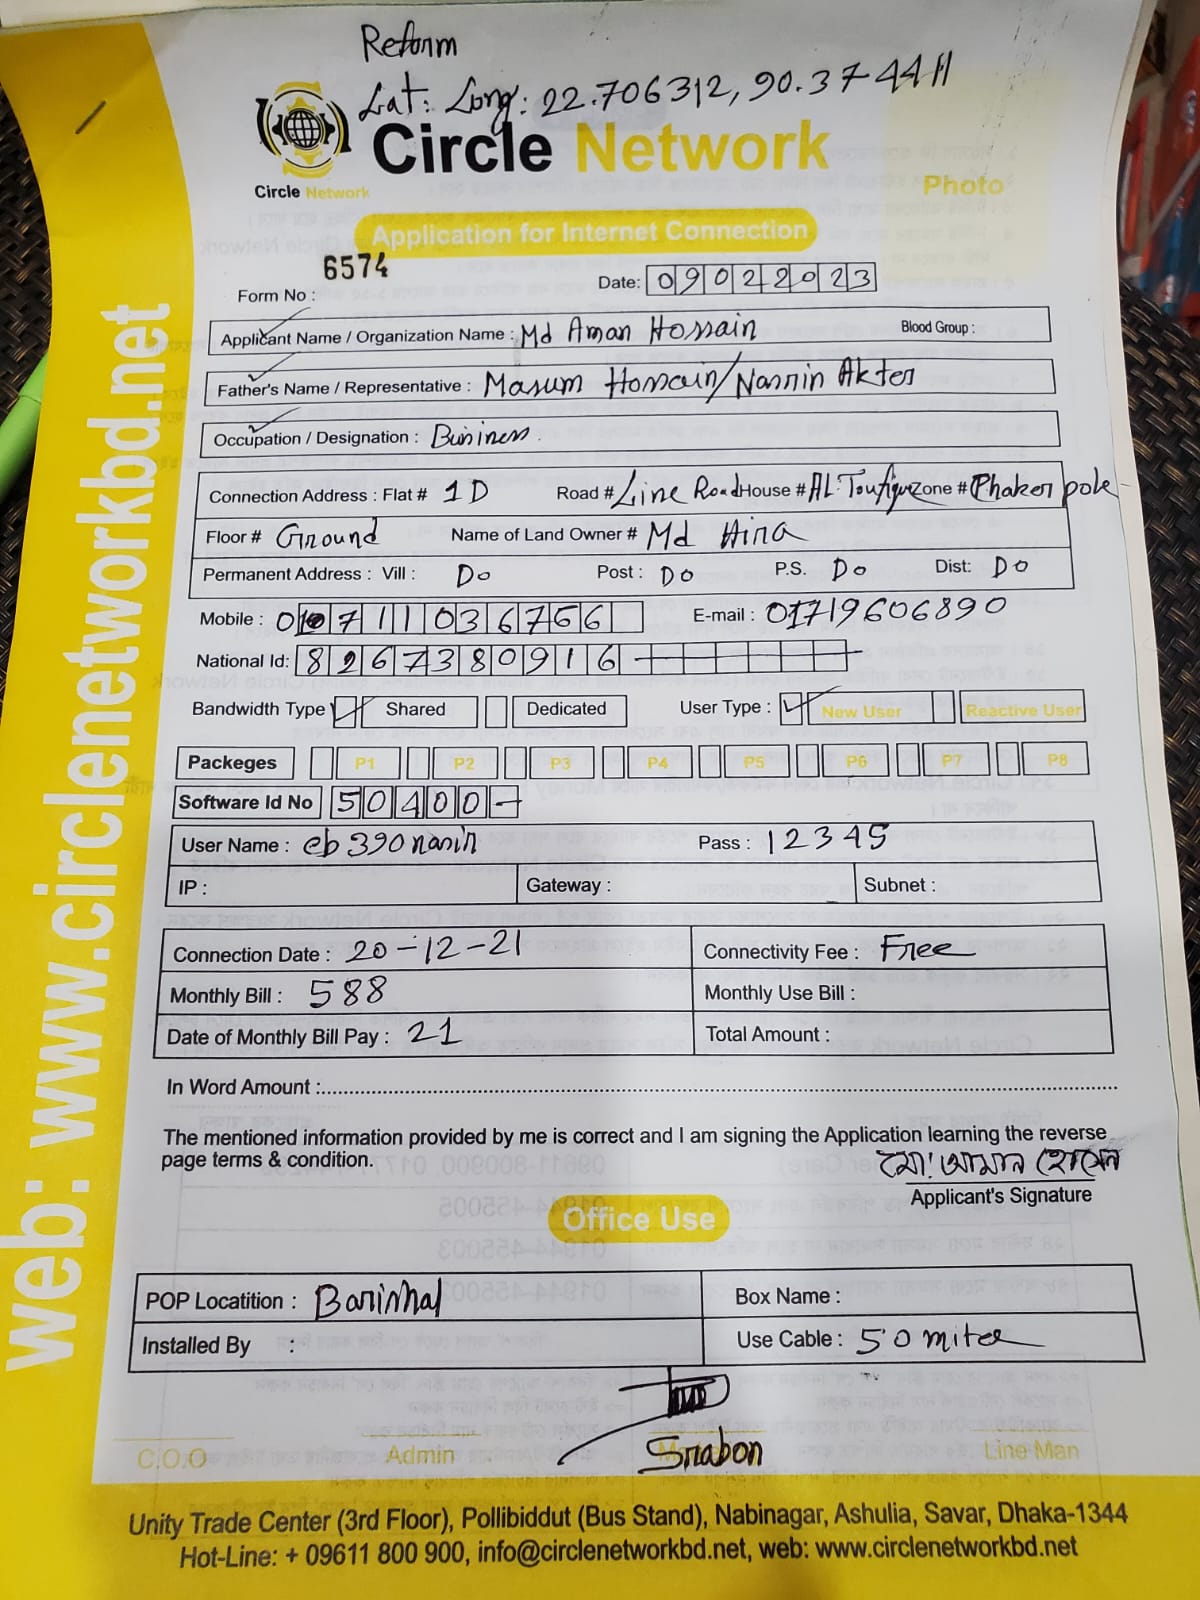 Reform
Lat: Long: 22.706312, 90.374411
Circle Network
Circle Network
Photo
Application for Internet Connection
6574
Form No :
Date: 09022023
Applicant Name / Organization Name : Md Aman Hossain Blood Group :
Father's Name / Representative : Masum Hossain/Nasrin Akter
Occupation / Designation : Business.
Connection Address : Flat # 1D Road # Line Road House # AL-Toufique Zone # Phaker pole
Floor # Ground Name of Land Owner # Md Hira
Permanent Address : Vill : Do Post : Do P.S. Do Dist: Do
Mobile : 01711036766 E-mail : 01719606890
National Id: 8267380916
Bandwidth Type Shared Dedicated User Type : New User Reactive User
Packeges P1 P2 P3 P4 P5 P6 P7 P8
Software Id No 50400-
User Name : eb390nasin Pass : 12345
IP : Gateway : Subnet :
Connection Date : 20-12-21 Connectivity Fee : Free
Monthly Bill : 588 Monthly Use Bill :
Date of Monthly Bill Pay : 21 Total Amount :
In Word Amount :
The mentioned information provided by me is correct and I am signing the Application learning the reverse
page terms & condition.
মো: আমান হোসেন
Applicant's Signature
Office Use
POP Locatition : Barishal Box Name :
Installed By : Use Cable : 50 miter
Srabon
C.O.O Admin Line Man
Unity Trade Center (3rd Floor), Pollibiddut (Bus Stand), Nabinagar, Ashulia, Savar, Dhaka-1344
Hot-Line: + 09611 800 900, info@circlenetworkbd.net, web: www.circlenetworkbd.net
web: www.circlenetworkbd.net